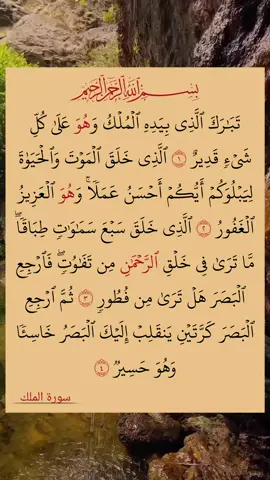 بِسْمِ اللَّهِ الرَّحْمَٰنِ الرَّحِيمِ
تَبَٰرَكَ ٱلَّذِى بِيَدِهِ ٱلْمُلْكُ وَهُوَ عَلَىٰ كُلِّ
شَىْءٍ قَدِيرٌ ١ ٱلَّذِى خَلَقَ ٱلْمَوْتَ وَٱلْحَيَوٰةَ
لِيَبْلُوَكُمْ أَيُّكُمْ أَحْسَنُ عَمَلًا ۚ وَهُوَ ٱلْعَزِيزُ
ٱلْغَفُورُ ٢ ٱلَّذِى خَلَقَ سَبْعَ سَمَٰوَٰتٍ طِبَاقًا ۖ
مَّا تَرَىٰ فِى خَلْقِ ٱلرَّحْمَٰنِ مِن تَفَٰوُتٍ ۖ فَٱرْجِعِ
ٱلْبَصَرَ هَلْ تَرَىٰ مِن فُطُورٍ ٣ ثُمَّ ٱرْجِعِ
ٱلْبَصَرَ كَرَّتَيْنِ يَنقَلِبْ إِلَيْكَ ٱلْبَصَرُ خَاسِئًا
وَهُوَ حَسِيرٌ ٤
سورة الملك